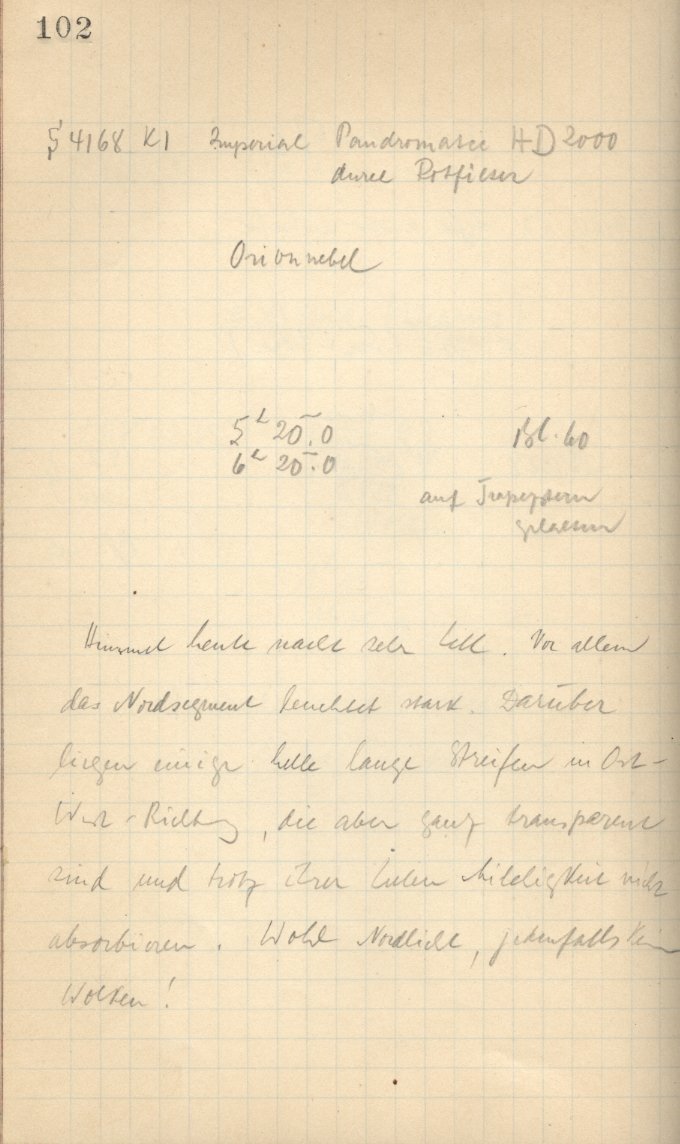 102
4168 K1 Imperial Pandromatic HD 2000
durch Rotfilter
Orionnebel
5h 20m.0 Bl. 60
6h 20m.0
auf Trapezstern
Himmel heute nacht sehr hell. Vor allem
das Nordsegment leuchtet stark. Darüber
liegen einige helle lange Streifen in Ost-
West-Richtung, die aber ganz transparent
sind und trotz ihrer hohen nicht
absorbieren. Wohl Nordlicht, jedenfalls kein
Wolken!